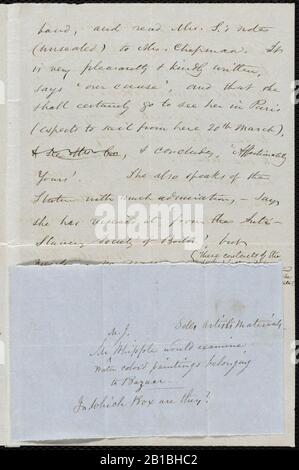 hand, and read Mrs. S's note
(unsealed) to Mrs. Chapman. It
is very pleasantly & kindly written,
says "our cause", and that she
shall certainly go to see her in Paris
(expects to sail from here 20th March),
& concludes, "Affectionately
Yours'. She also speaks of the
with much admiration, - says
she has it from the Anti-
Slavery Society of Boston', but
(these contents of the
Sells Artists Materials,
M. J.
Mr Whipple would examine
Water color paintings belonging
to Bazaar
In which Box are they?
alamy
Image ID: 2B1BHC2
www.alamy.com